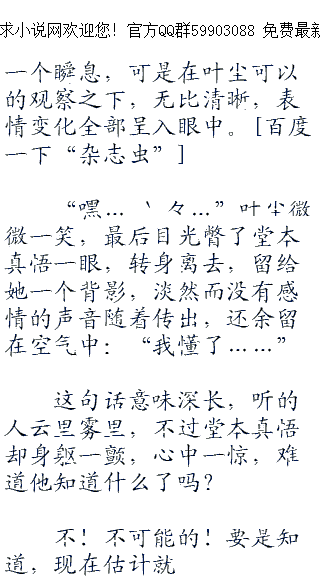 求小说网欢迎您！官方QQ群59903088 免费最新
一个瞬息，可是在叶尘可以
的观察之下，无比清晰，表
情变化全部呈入眼中。[百度
一下“杂志虫”]
“嘿… 丶 々…”叶尘微
微一笑，最后目光瞥了堂本
真悟一眼，转身离去，留给
她一个背影，淡然而没有感
情的声音随着传出，还余留
在空气中：“我懂了……”
这句话意味深长，听的
人云里雾里，不过堂本真悟
却身躯一颤，心中一惊，难
道他知道什么了吗？
不！不可能的！要是知
道，现在估计就